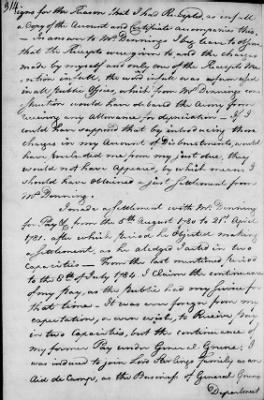 314
signs for the Reason that I had Receipted, as in full
a Copy of the Account and Certificate accompanies this.
In answer to Mr Dennings I beg leave to observe
that the Receipts were given to and the charges
made by myself and only one of the Receipts Men-
-tion in full, the word in full was expressed
in all Public Offices, which from Mr Dennings con-
-struction would have debarred the Army from
receiving any allowance for depreciation — If I
could have supposed that by introducing those
charges in my Amount of Disbursements, would
have precluded me from my just due, they
would not have appeared, by which means I
should have obtained a just Settlement from
Mr Denning.
I made a Settlement with Mr Denning
for Pay &c from the 5th August 1780 to 21st April
1781. after which period he objected making
a Settlement, as he alledged I acted in two
capacities — From the last mentioned period
to the 8th of July 1784 I Claim the continuance
of my Pay, as the Public had my Service for
that time — It was ever foreign from my
expectation, or even wish, to Receive Pay
in two Capacities, but the continuance of
my former Pay under General Greene; I
was induced to join Lord Sterlings family, as an
Aid de Camp, as the Business of General Greens
Department